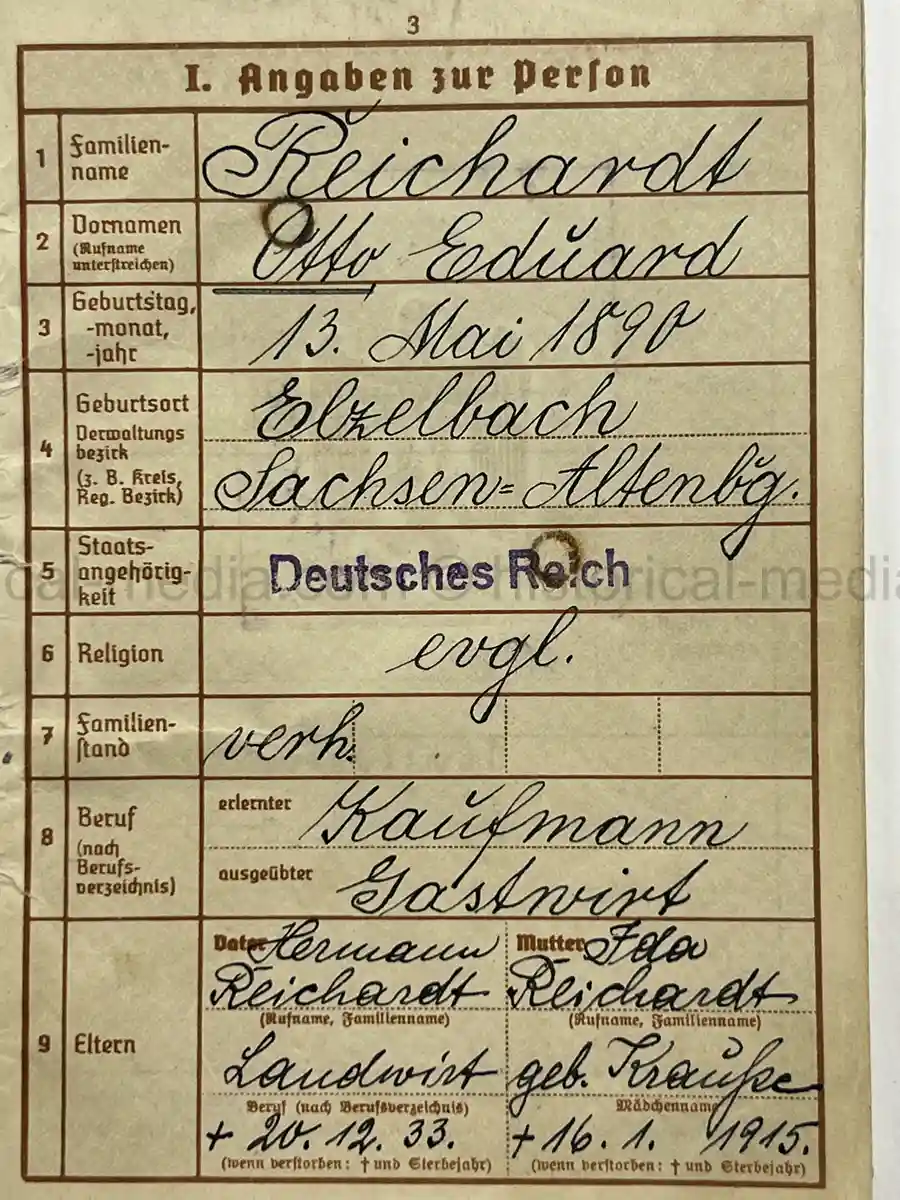 3
I. Angaben zur Person
1 Familien-
name
Reichardt
2 Vornamen
(Rufname
unterstreichen)
Otto Eduard
3 Geburtstag,
-monat,
-jahr
13. Mai 1890
4 Geburtsort
Verwaltungs
bezirk
(z. B. Kreis,
Reg. Bezirk)
Ebzelbach
Sachsen= Altenbg.
5 Staats-
angehörig-
keit
Deutsches Reich
6 Religion
evgl.
7 Familien-
stand
verh.
8 Beruf
(nach
Berufs-
verzeichnis)
erlernter Kaufmann
ausgeübter Gastwirt
9 Eltern
Vater Hermann
Reichardt
(Rufname, Familienname)
Landwirt
Beruf (nach Berufsverzeichnis)
+ 20. 12. 33.
(wenn verstorben: † und Sterbejahr)
Mutter Ida
Reichardt
(Rufname, Familienname)
geb. Krauße
Mädchenname
+ 16. 1. 1915.
(wenn verstorben: † und Sterbejahr)
historical-media